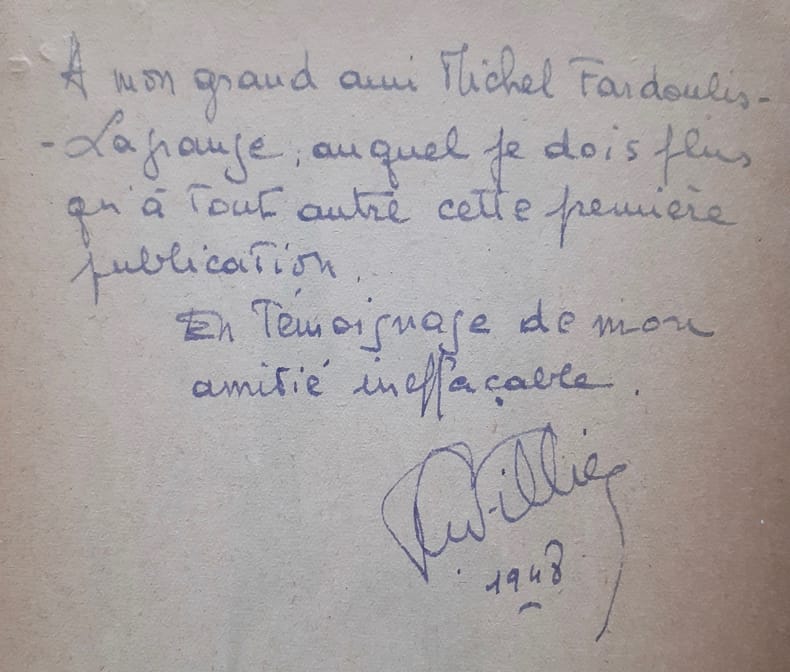 A mon grand ami Michel Fardoulis-
-Lagrange, auquel je dois plus
qu'à tout autre cette première
publication.
En témoignage de mon
amitié ineffaçable.
1948